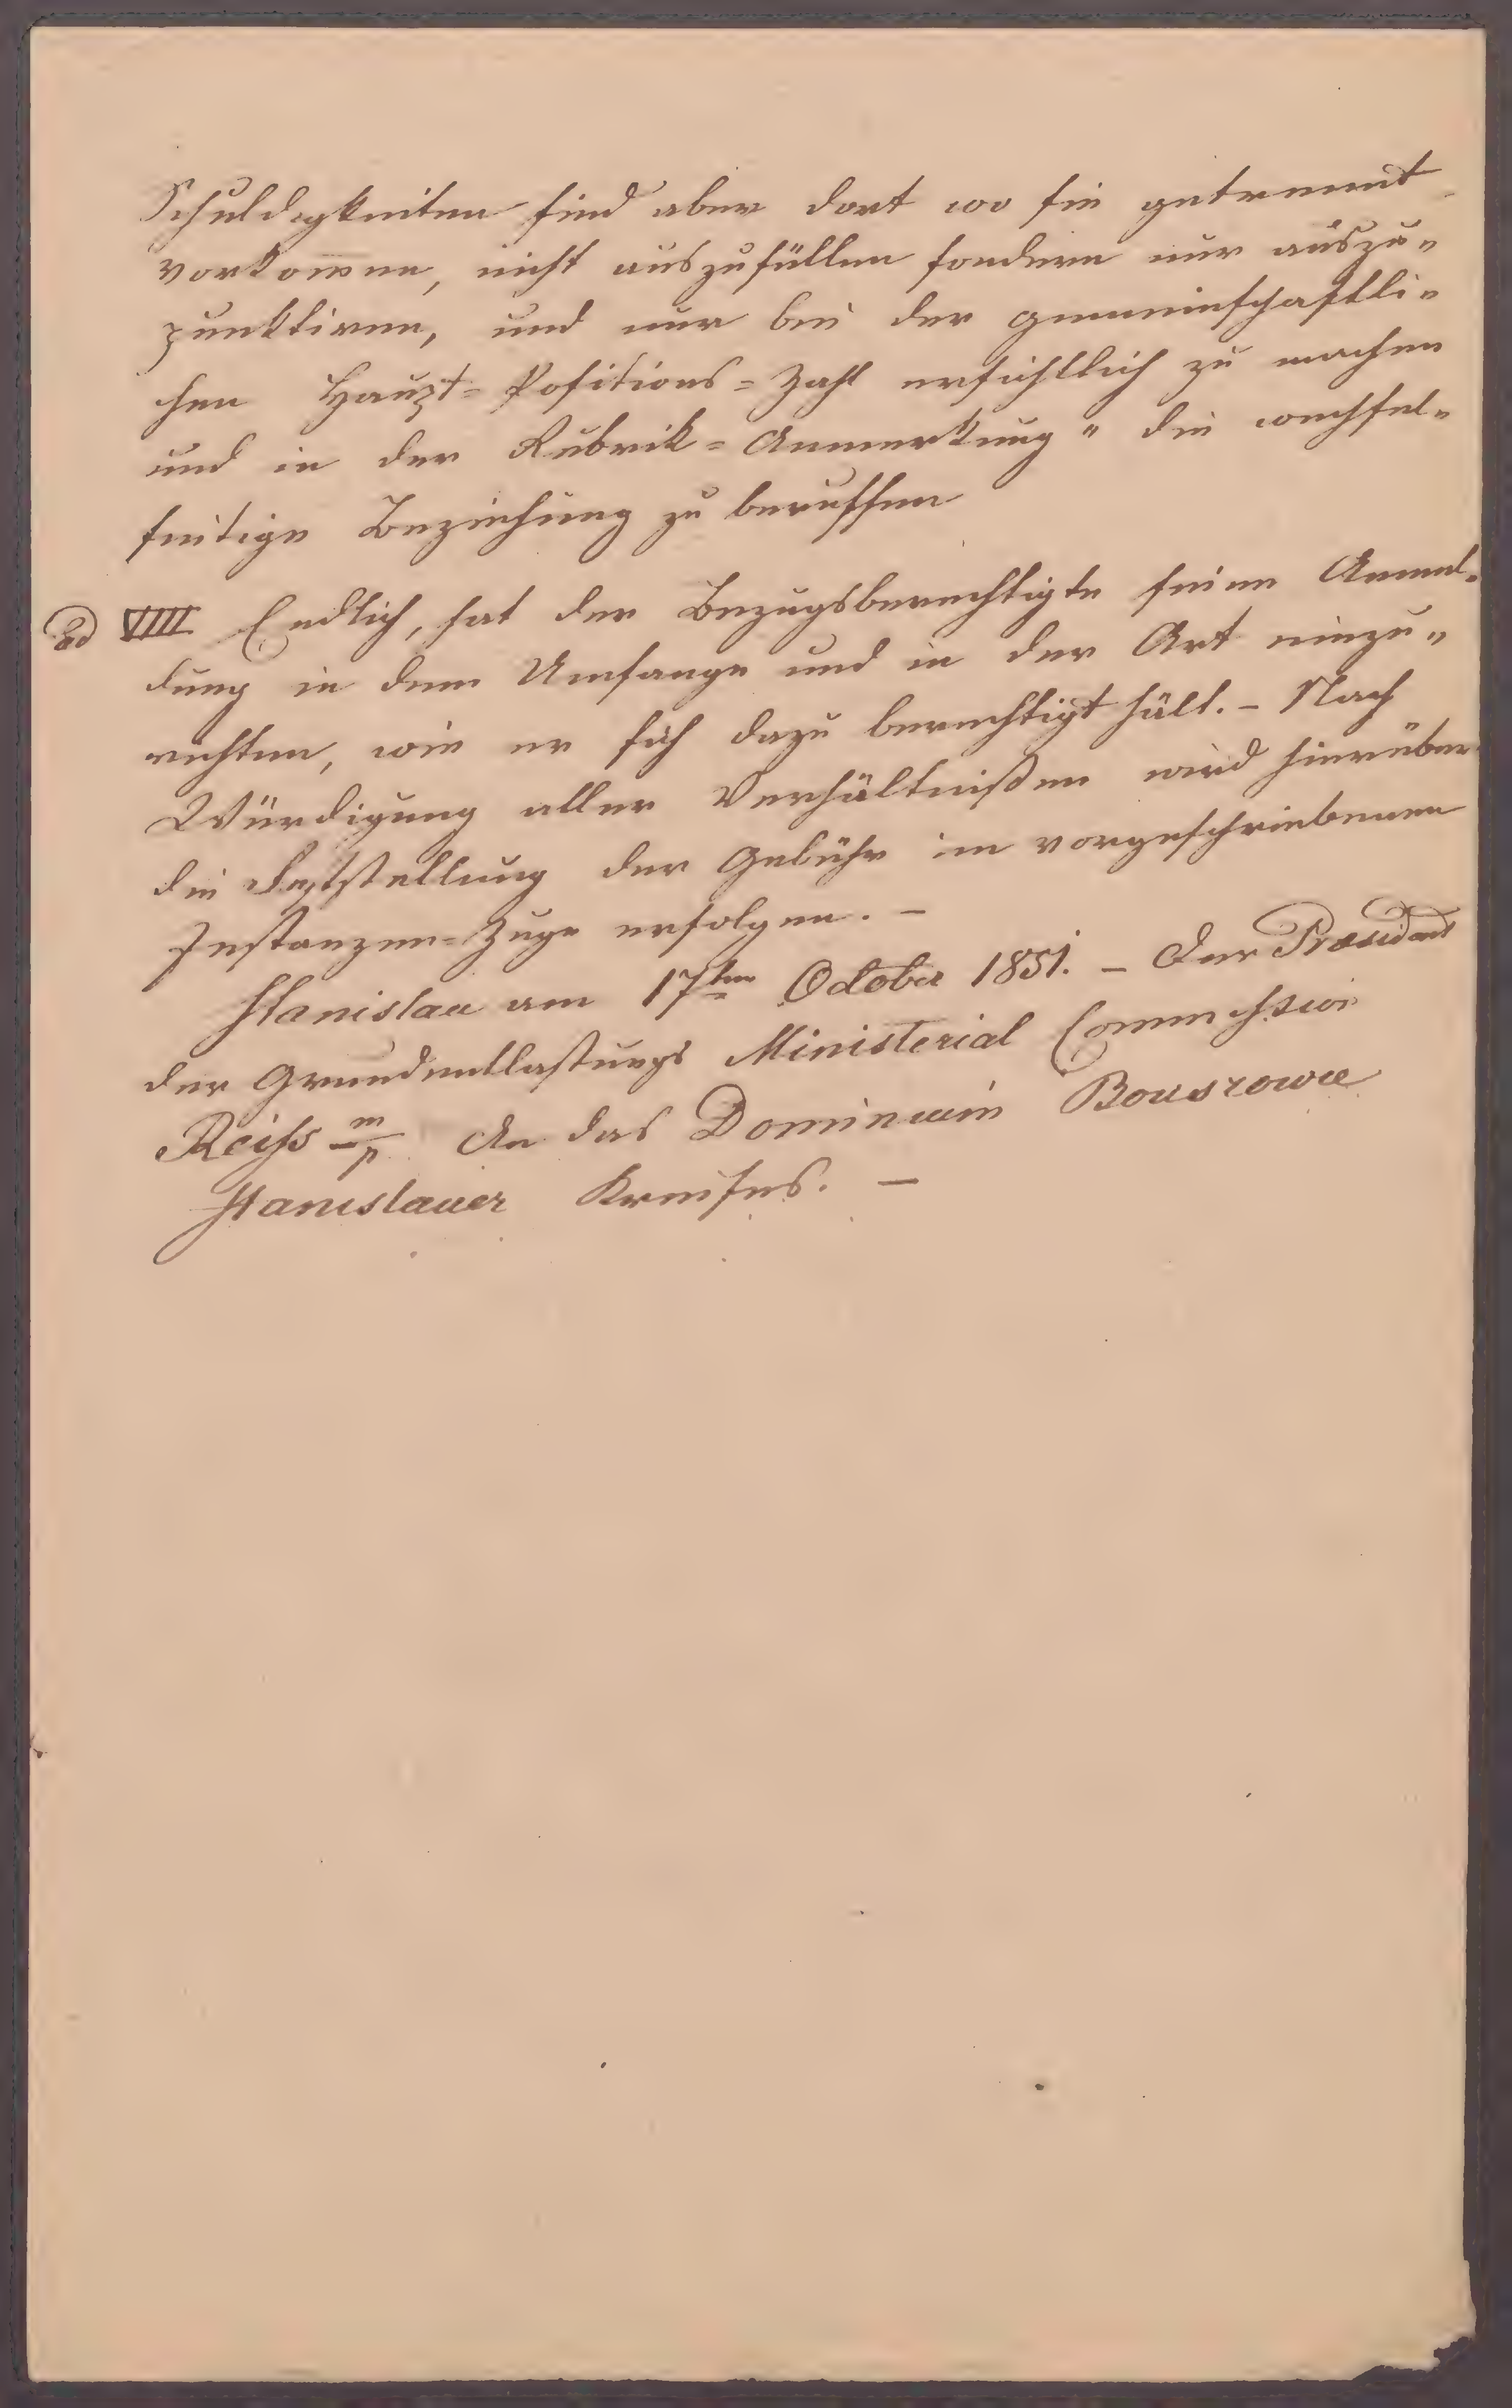 Schuldigkeiten sind aber dort wo sie getrennt
vorkomen, nicht auszufüllen sondern nur auszu„
punktiren, und nur bei der gemeinschaftli„
chen Haupt=Positions=Zahl ersichtlich zu machen
und in der Rubrik=Anmerkung" die wechsel„
seitige Beziehung zu beruffen
ad VIII Endlich, hat der Bezugsberechtigte seine Anmel„
dung in dem Umfange und in der Art einzu„
richten, wie er sich dazu berechtigt hält. – Nach
Würdigung aller Verhältnißen wird hierüber
die Feststellung der Gebühr im vorgeschriebenen
Instanzen=Zuge erfolgen. –
Stanislau am 17ten October 1851. – Der Praesident
der Grundentlastungs Ministerial Commission
Reiss m/p An das Dominium
Stanislauer Kreises. –